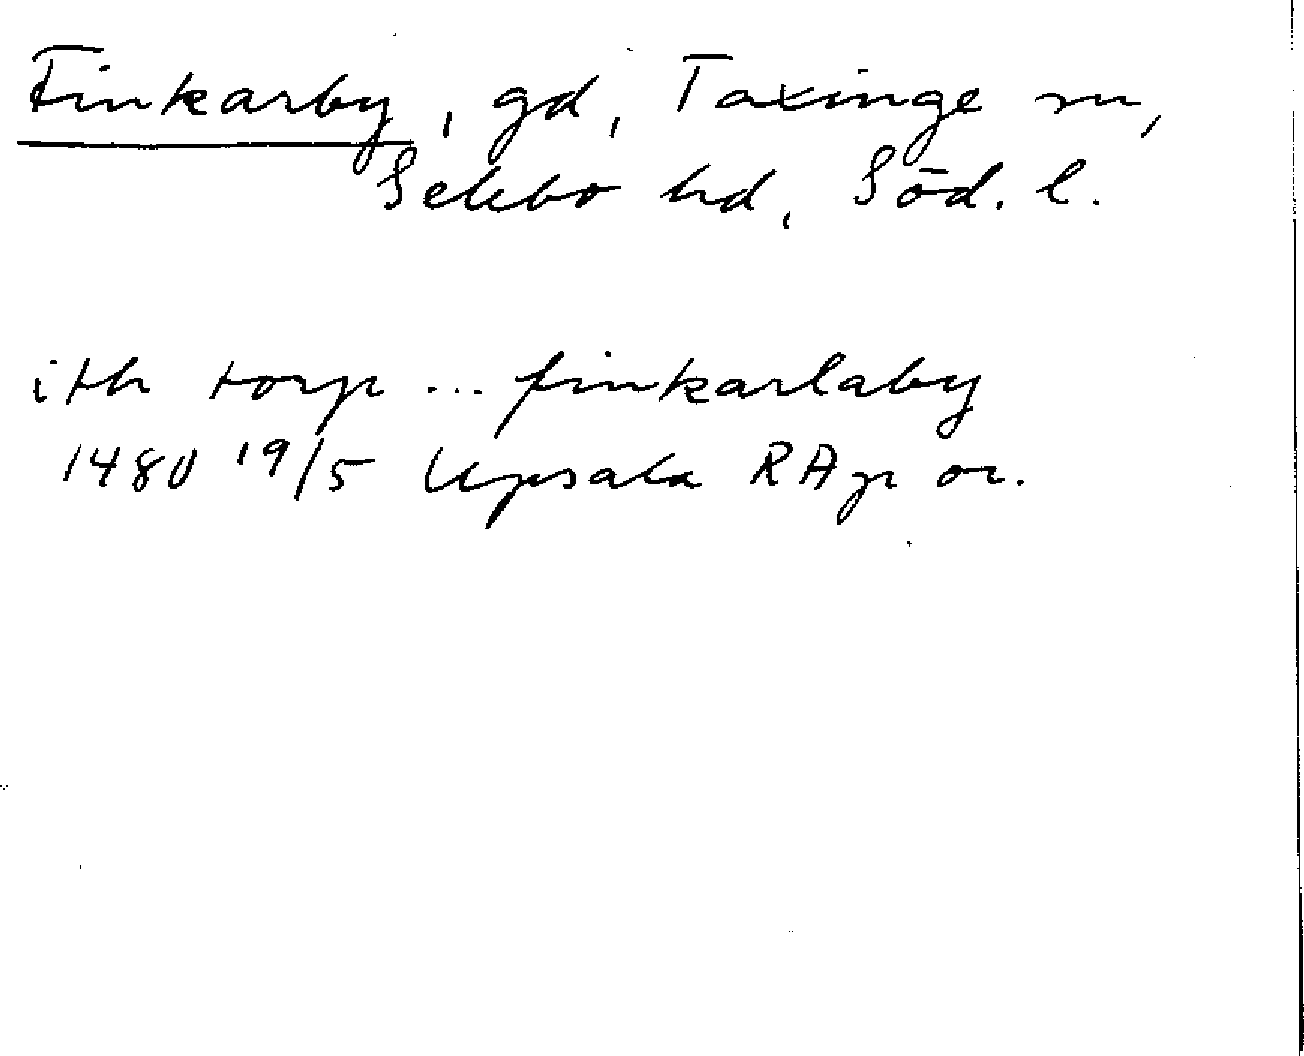 Finkarby, gd, Taxinge sn,
Selebo hd, Söd. l.
ith torp ... finkarlaby
1480 19/5 Upsala RAp or.